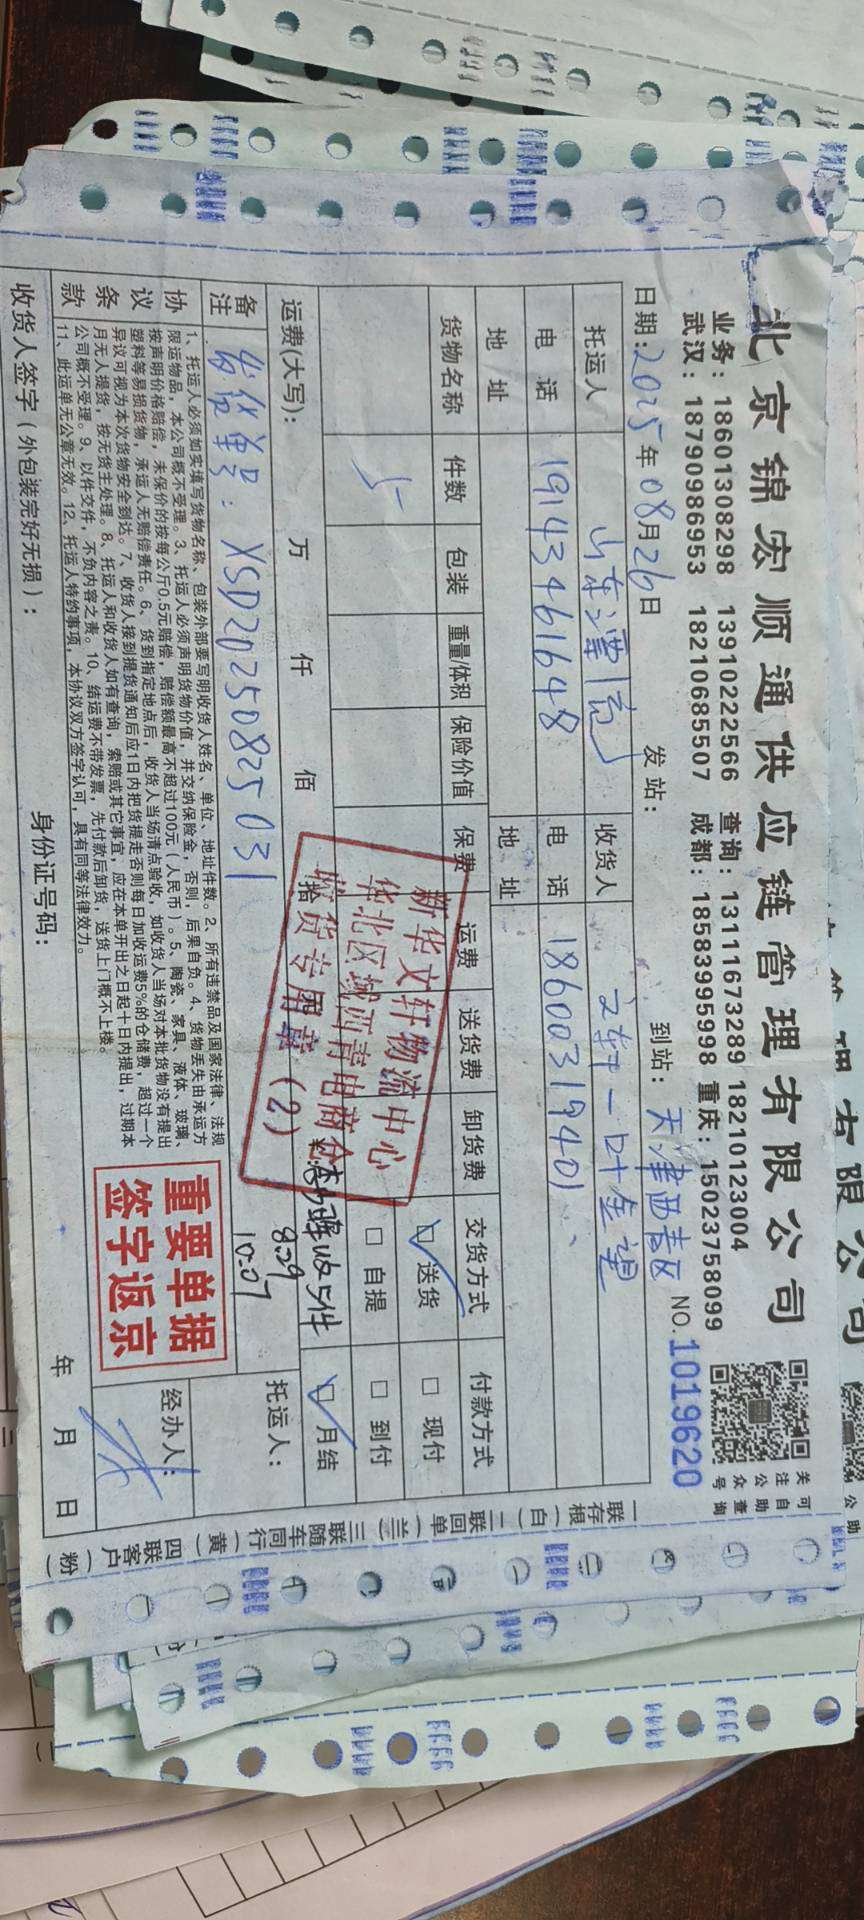 北京锦宏顺通供应链管理有限公司
业务：18601308298 13910222566 查询：13111673289 18210123004
武汉：18790986953 18210685507 成都：18583995998 重庆：15023758099
关注公众号
可自助查询
日期：2025年08月26日 发站： 到站：天津西青区 NO.1019620
托运人 山东 收货人 文轩一叶金望
电话 19143461648 电话 18600319401
地址 地址
货物名称 件数 包装 重量/体积 保险价值 保费 运费 送货费 卸货费 交货方式 付款方式
5 送货 现付
自提 到付
运费(大写)： 万 仟 佰 拾 月结
新华文轩物流中心
华北区域西青电商仓
收货专用章（2）
收5件
8.29
10:07
备注 备货单号：XSD20250825031 托运人：
协议条款
1、托运人必须如实填写货物名称、包装外部要写明收货人姓名、单位、地址件数。2、所有违禁品及国家法律、法规
限运物品，本公司概不受理。3、托运人必须声明货物价值，并交纳保险金，否则，后果自负。4、货物丢失由承运方
按声明价格赔偿，未保价的按每公斤0.5元赔偿，赔偿额最高不超过100元（人民币）。5、陶瓷、家具、液体、玻璃、
塑料等易损货物，承运人无赔偿责任。6、货到指定地点后，收货人当场清点验收，如收货人当场对本批货物没有提出
异议可视为本次货物安全到达。7、收货人接到提货通知后应1日内把货提走否则每日加收运费5%的仓储费，超过一个
月无人提货，按无货主处理。8、托运人和收货人如有查询，索赔或其它事宜，应在本单开出之日起十日内提出，过期本
公司概不受理。9、以件交件，不负内容之责。10、结运费不带发票，先付款后卸货，送货上门概不上楼。
11、此运单无公章无效。12、托运人特约事项，本协议双方签字认可，具有同等法律效力。
重要单据
签字返京
经办人：
收货人签字（外包装完好无损）： 身份证号码： 年 月 日
一联存根（白） 二联回单（兰） 三联随车同行（黄） 四联客户（粉）